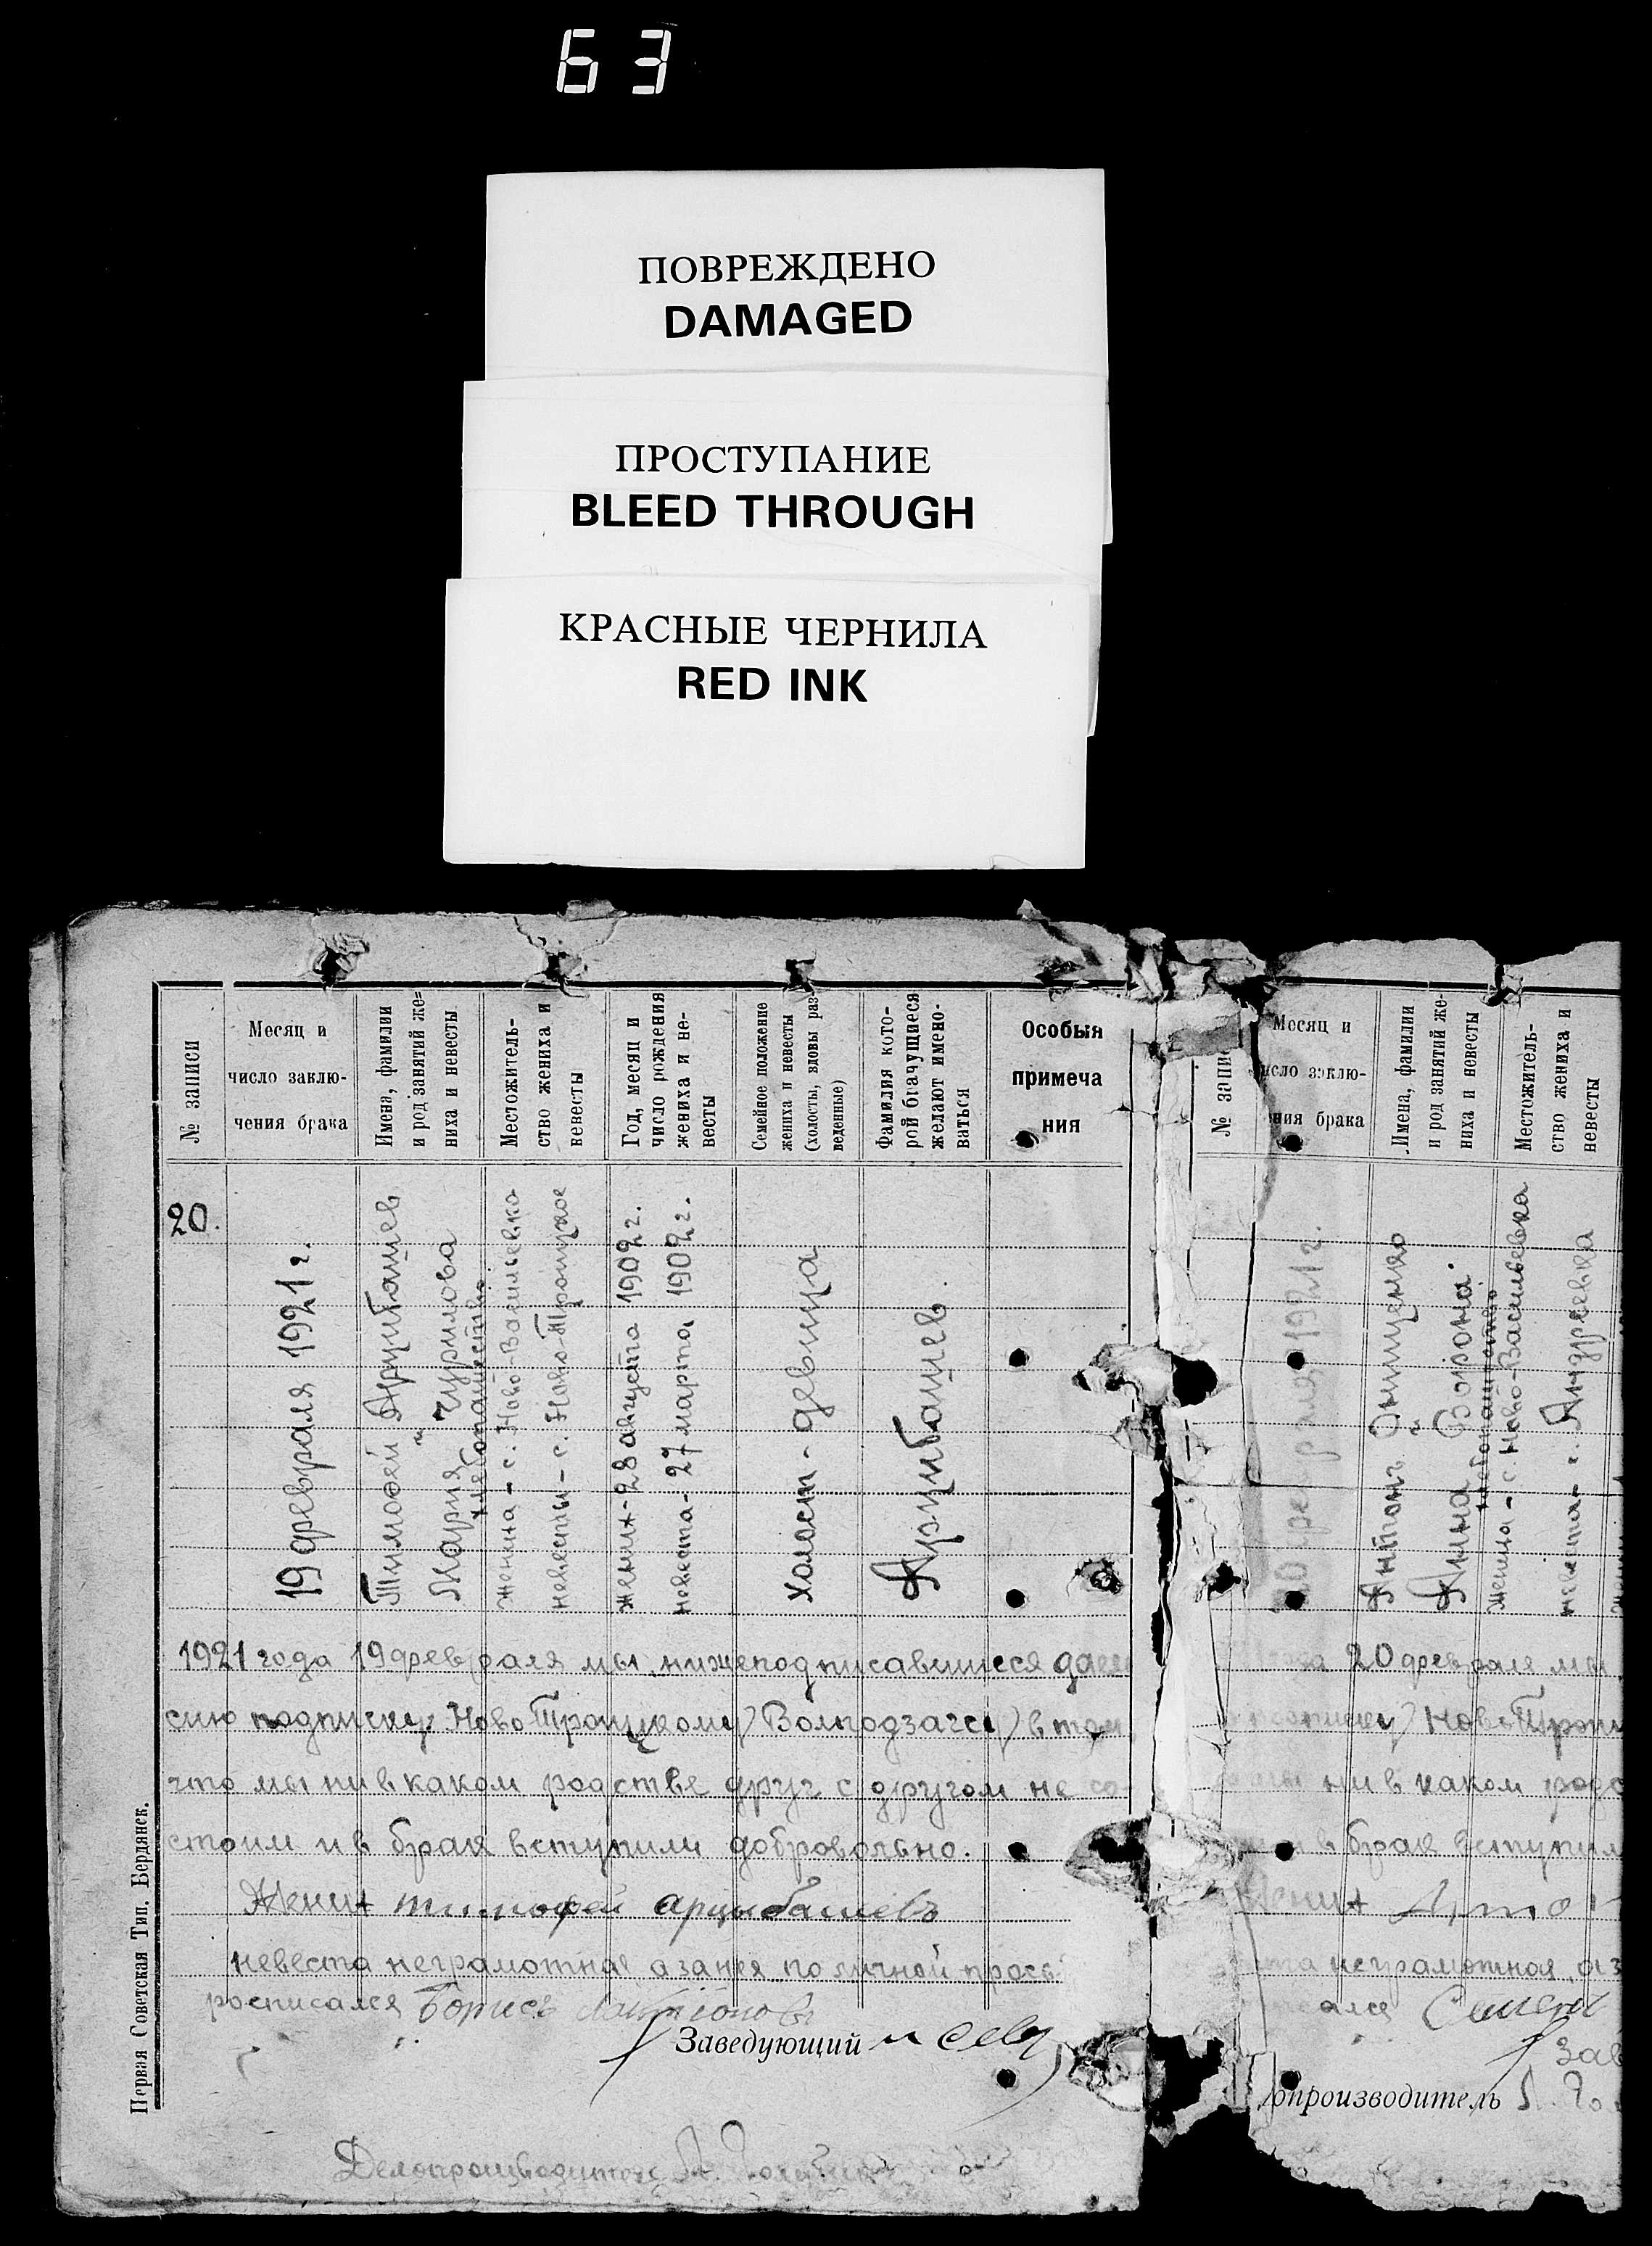 63
ПОВРЕЖДЕНО
DAMAGED
ПРОСТУПАНИЕ
BLEED THROUGH
КРАСНЫЕ ЧЕРНИЛА
RED INK
№ записи
Месяц и
число заклю-
чения брака
Имена, фамилии
и род занятий же=
ниха и невесты
Местожитель-
ство жениха и
невесты
Год, месяц и
число рождения
жениха и не-
весты
Семейное положение
жениха и невесты
(холосты, вдовы раз-
веденные)
Фамилия кото-
рой брачущиеся
желают имено-
ваться
Особыя
примеча
ния
20.
19 февраля 1921 г.
Тимофей Арцибашев
" Мария Чурилова
хлебопашество
жениха - с. Ново-Васильевка
невесты - с. Ново-Троицкое
жених - 28 августа 1902 г.
невеста - 27 марта 1902 г.
Холост - девица
Арцибашев
1921 года 19 февраля мы нижеподписавшиеся даем
сию подписку Ново Троицкому Волподзагсу в том
что мы ни в каком родстве друг с другом не со-
стоим и в брак вступили добровольно.
Жених тимофей арцыбашевъ
невеста неграмотная а за нея по личной прось
росписался Борисъ
Заведующий
Делопроизводитель
Первая Советская Тип. Бердянск.
№ запис
Месяц и
исло заклю-
ния брака
Имена, фамилии
и род занятий же-
ниха и невесты
Местожитель-
ство жениха и
невесты
20 февраля 1921 г.
Антонъ Онищенко
" Анна Ворона
хлебопашество
жениха - с. Ново-Васильевка
невеста - с. Андреевка
20 февраля мы
Ново Трои
ни в каком родс
в брак вступил
Жених Анто
та неграмотная, а з
ался Семенъ
Зав
опроизводитель